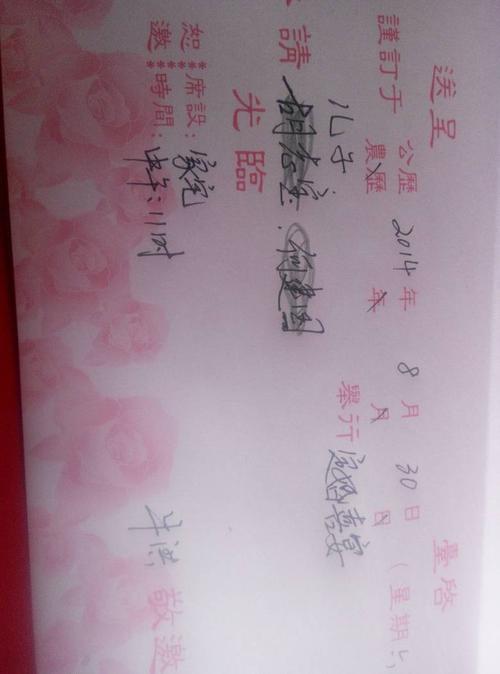 送呈 臺啓
謹訂于 公歷 2014年 8月 30日(星期六)
農歷 年 月 日
儿子 舉行 定婚喜宴
請 何建国
光臨
恕 席設:家宅
邀 時間:中午:11时
敬邀